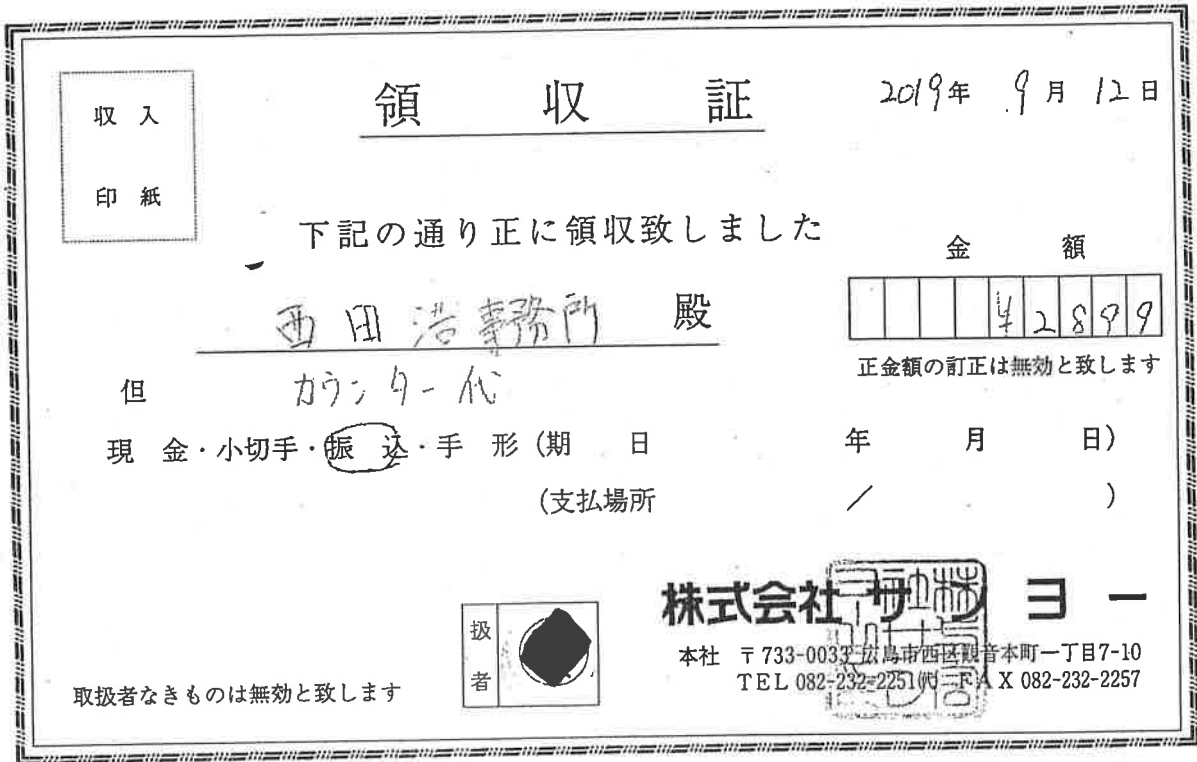 収入
印紙
領収証
2019年 9月 12日
下記の通り正に領収致しました
金額
西田浩事務所 殿
¥2899
正金額の訂正は無効と致します
但 カウンター代
現金・小切手・振込・手形(期日 年 月 日)
(支払場所 / )
株式会社サンヨー
扱者
本社 〒733-0033 広島市西区観音本町一丁目7-10
TEL 082-232-2251㈹ FAX 082-232-2257
取扱者なきものは無効と致します